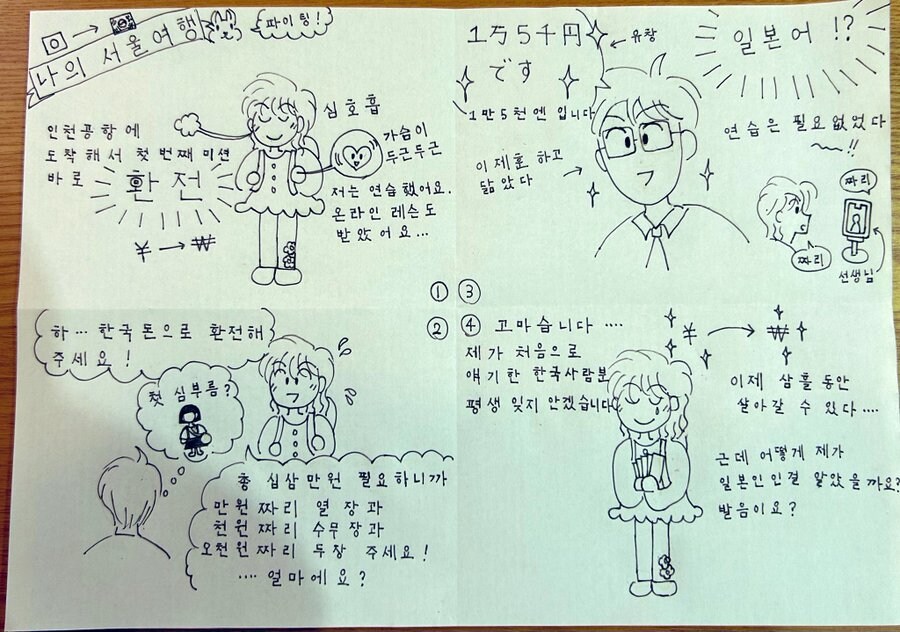 나의 서울여행
파이팅!
인천공항에
도착해서 첫 번째 미션
바로
환전
¥ → ₩
심호흡
가슴이
두근두근
저는 연습했어요.
온라인 레슨도
받았어요...
①
②
하... 한국돈으로 환전해
주세요!
첫 심부름?
총 십삼만원 필요하니까
만원짜리 열 장과
천원짜리 수무장과
오천원짜리 두장 주세요!
.... 얼마에요?
③
1万5千円
です
1만5천엔 입니다
← 유창
일본어 !?
연습은 필요없었다
~!!
이제훈 하고
닮았다
짜리
짜리
선생님
④
고마습니다 ....
제가 처음으로
얘기한 한국사람분
평생 잊지 안겠습니다
¥ → ₩
이제 삼흘 동안
살아갈 수 있다 ....
근데 어떻게 제가
일본인인걸 알았을까요?
발음이요?